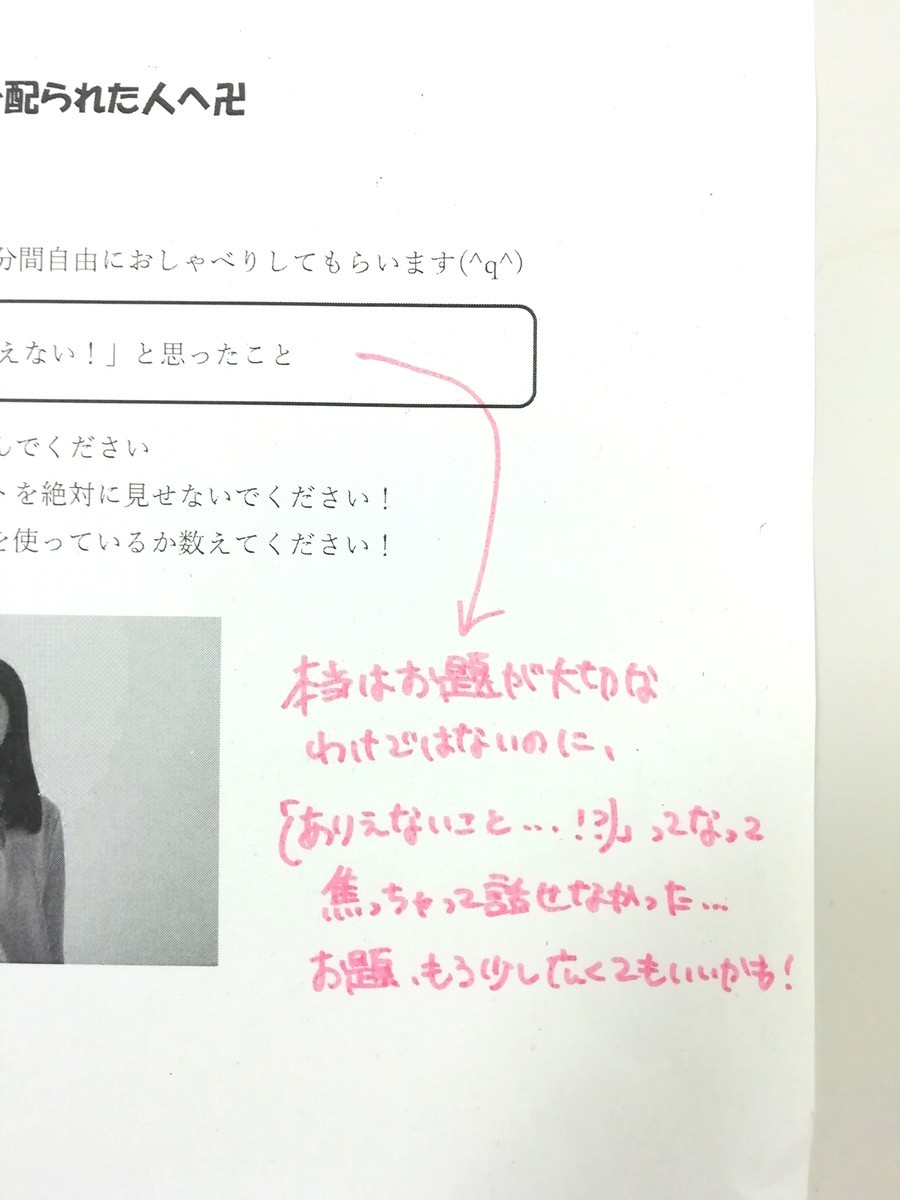 配られた人へ卍
分間自由におしゃべりしてもらいます(^q^)
えない！」と思ったこと
んでください
トを絶対に見せないでください！
を使っているか数えてください！
本当はお題が大切な
わけではないのに、
「(ありえないこと…！？)」ってなって
焦っちゃって話せなかった…
お題、もう少し広くてもいいかも！